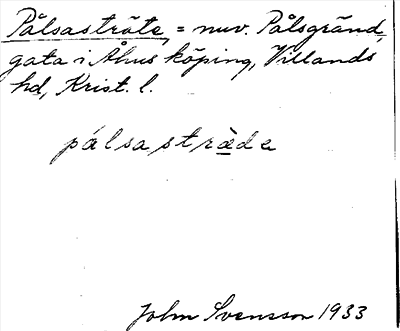 Pålsasträte, = nuv. Pålsgränd,
gata i Åhus köping, Villands
hd, Krist. l.
pálsa strὰde
John Svensson 1933